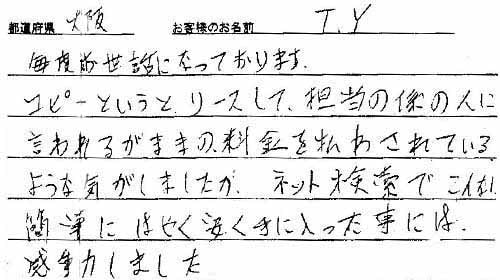 都道府県 大阪 お客様のお名前 T.Y
毎度お世話になっております.
コピーというと、リースして、担当の係の人に
言われるがままの、料金を払わされている
ような気がしましたが、ネット検索でこんなに
簡単にはやく安く手に入った事には、
感動しました